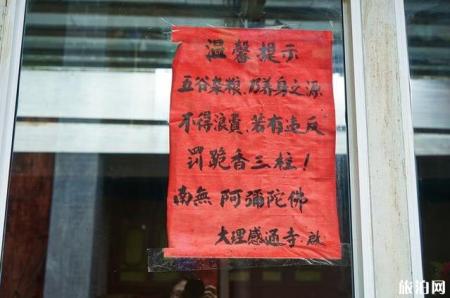 温馨提示
五谷杂粮，乃养身之源
不得浪費，若有违反
罚跪香三柱！
南無阿彌陀佛
大理感通寺·啟
旅泊网